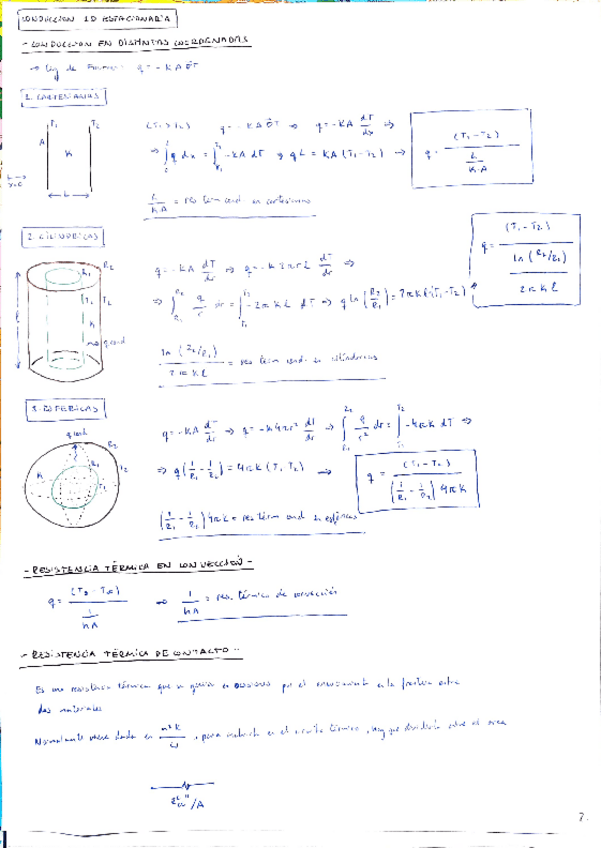 CONDUCCION 1D ESTACIONARIA
- CONDUCCION EN DISTINTAS COORDENADAS
→ Ley de Fourier: q = -KA ∇T
1. CARTESIANAS
T₁ T₂
A
K
x=0
L
(T₁>T₂) q = -KA∇T ⇒ q = -KA dT/dx ⇒
⇒ ∫ q dx = ∫ -KA dT ⇒ qL = KA(T₁-T₂) → q = (T₁-T₂) / (L/(K·A))
L/(K·A) = res térm cond en cartesianas
2. CILINDRICAS
R₁ R₂
T₁ T₂
K
q cond
q = -KA dT/dr ⇒ q = -K2πrL dT/dr ⇒
⇒ ∫ q/r dr = ∫ -2πKL dT ⇒ q ln(R₂/R₁) = 2πKL(T₁-T₂)
q = (T₁-T₂) / (ln(R₂/R₁)/(2πKL))
ln(R₂/R₁)/(2πKL) = res térm cond en cilíndricas
3. ESFERICAS
q cond
R₁ R₂
T₁ T₂
K
q = -KA dT/dr ⇒ q = -K4πr² dT/dr ⇒ ∫ q/r² dr = ∫ -4πK dT ⇒
⇒ q(1/R₁ - 1/R₂) = 4πK(T₁-T₂) → q = (T₁-T₂) / ((1/R₁ - 1/R₂) 4πK)
(1/R₁ - 1/R₂) 4πK = res térm cond en esféricas
- RESISTENCIA TÉRMICA EN CONVECCIÓN -
q = (Ts - T∞) / (1/(hA)) ⇒ 1/(hA) = res. térmica de convección
- RESISTENCIA TÉRMICA DE CONTACTO -
Es una resistencia térmica que se genera en ocasiones por el en la frontera entre
dos materiales
Normalmente viene dada en m²K/W , para meterla en el circuito térmico, hay que dividirla entre el area
/A
2.